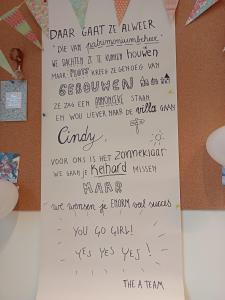 DAAR GAAT ZE ALWEER
"DIE VAN patrimoniumbeheer"
WE DACHTEN ZE TE KUNNEN houwen
MAAR KREEG ZE GENOEG VAN
GEBOUWEN
ZE ZAG EEN annonceke STAAN
EN WOU LIEVER NAAR DE villa GAAN
Cindy,
VOOR ONS IS HET zonneklaar
WE GAAN JE Keihard MISSEN
MAAR
we wensen je ENORM veel succes
YOU GO GIRL!
YES YES YES!
THE A TEAM